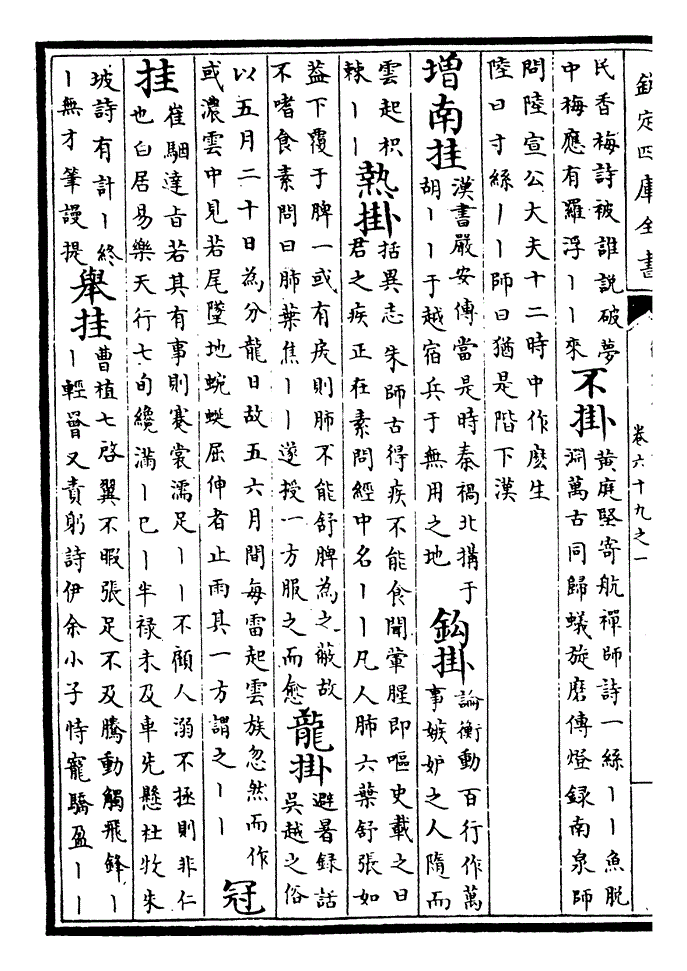 欽定四庫全書
卷六十九之一
民香梅詩被誰說破夢
中梅應有羅浮丨丨來
不掛
黄庭堅寄航禪師詩一絲丨丨魚脱
淵萬古同歸蟻旋磨傳燈録南泉師
問陸宣公大夫十二時中作麽生
陸曰寸絲丨丨師曰猶是階下漢
增南挂
漢書嚴安傳當是時秦禍北搆于
胡丨丨于越宿兵于無用之地
鈎掛
論衡動百行作萬
事嫉妒之人隨而
雲起枳
棘丨丨
熱掛
括異志朱師古得疾不能食聞葷腥即嘔史載之曰
君之疾正在素問經中名丨丨凡人肺六葉舒張如
葢下覆于脾一或有戾則肺不能舒脾為之蔽故
不嗜食素問曰肺葉焦丨丨遂授一方服之而愈
龍掛
避暑録話
吳越之俗
以五月二十日為分龍日故五六月間每雷起雲族忽然而作
或濃雲中見若尾墜地蜿蜒屈伸者止雨其一方謂之丨丨
冠
挂
崔駰達旨若其有事則褰裳濡足丨丨不顧人溺不拯則非仁
也白居易樂天行七旬纔滿丨已丨半禄未及車先懸杜牧朱
坡詩有計丨終
丨無才筆謾提
舉挂
曹植七啓翼不暇張足不及騰動觸飛鋒丨
丨輕罾又責躬詩伊余小子恃寵驕盈丨丨